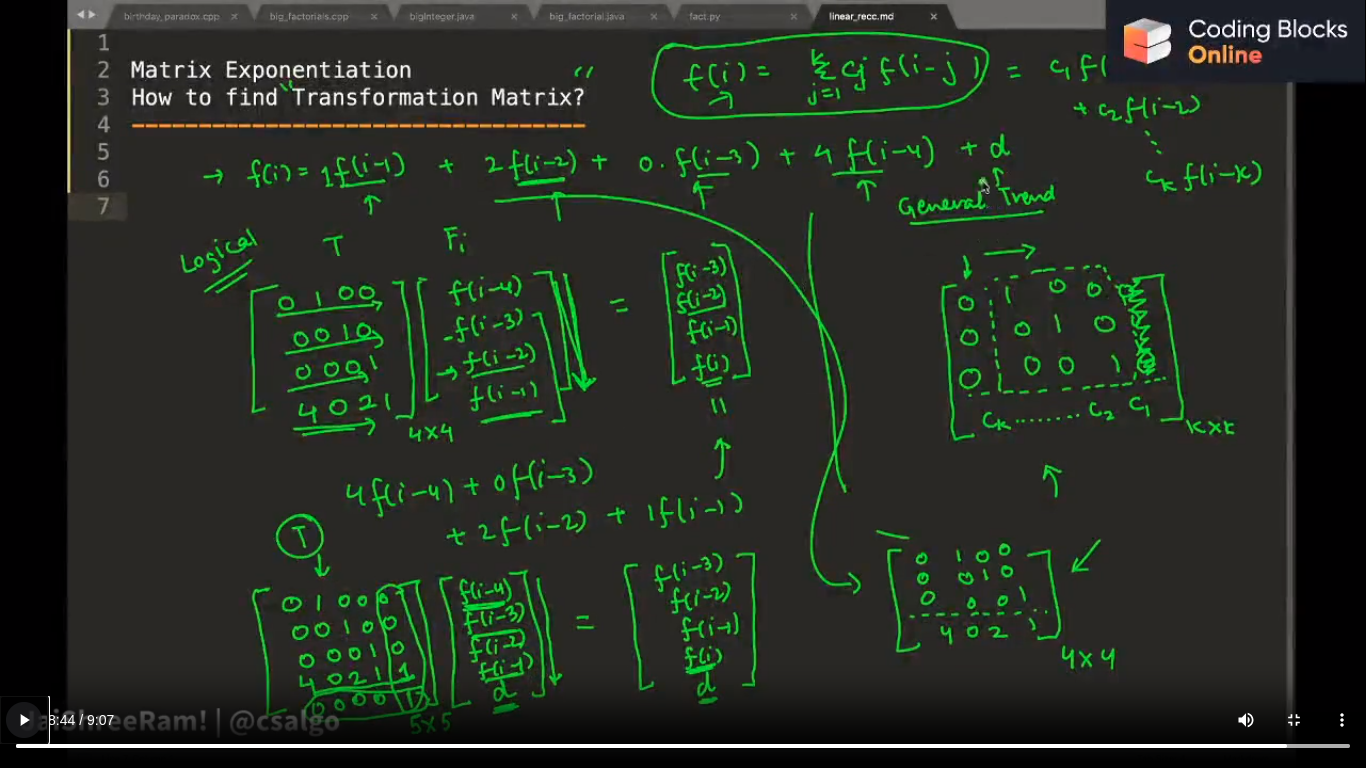 birthday_paradox.cpp × big_factorials.cpp × bigInteger.java × big_factorial.java × fact.py × linear_recc.md ×
Coding Blocks
Online
1
2 Matrix Exponentiation
3 "How to find Transformation Matrix?"
4 ------------------------------
5
6
7
f(i) = Σ_{j=1}^{k} cj f(i-j) = c1 f(
+ c2 f(i-2)
⋮
ck f(i-k)
→ f(i) = 1f(i-1) + 2f(i-2) + 0.f(i-3) + 4f(i-4) + d
General Trend
Logical
T Fi
0 1 0 0 f(i-4) f(i-3)
0 0 1 0 f(i-3) = f(i-2)
0 0 0 1 → f(i-2) f(i-1)
4 0 2 1 f(i-1) f(i)
4×4
0 1 0 0
0 0 1 0
0 0 0 1
ck ........ c2 c1
k×k
4f(i-4) + 0f(i-3)
+ 2f(i-2) + 1f(i-1)
T
0 1 0 0 0 f(i-4) f(i-3)
0 0 1 0 0 f(i-3) f(i-2)
0 0 0 1 0 f(i-2) = f(i-1)
4 0 2 1 1 f(i-1) f(i)
0 0 0 0 1 d d
5×5
0 1 0 0
0 0 1 0
0 0 0 1
4 0 2 1
4×4
JaiShreeRam! | @csalgo
8:44 / 9:07